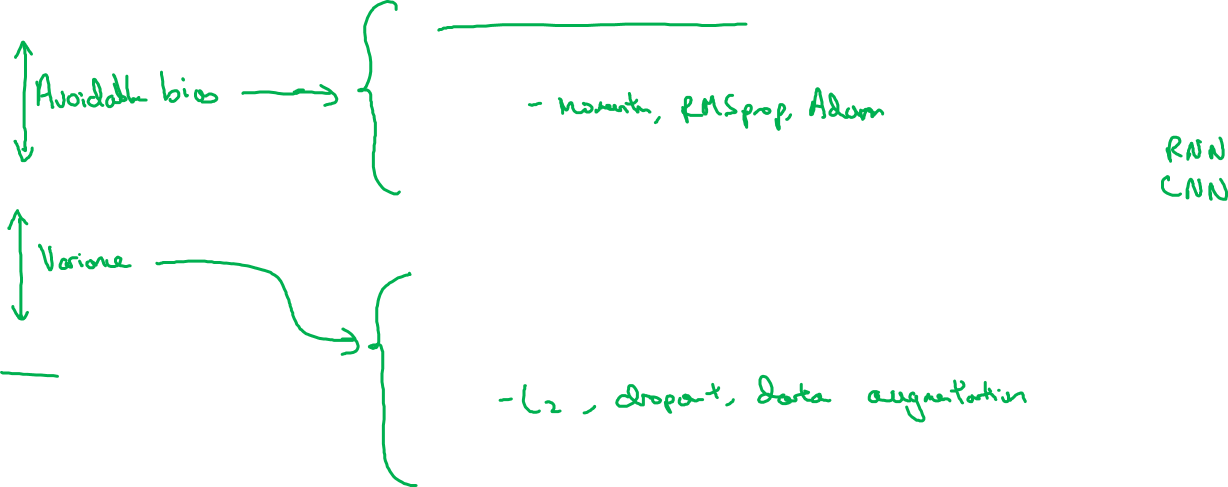 Avoidable bias
- Momentum, RMSprop, Adam
RNN
CNN
Variance
- L2, dropout, data augmentation